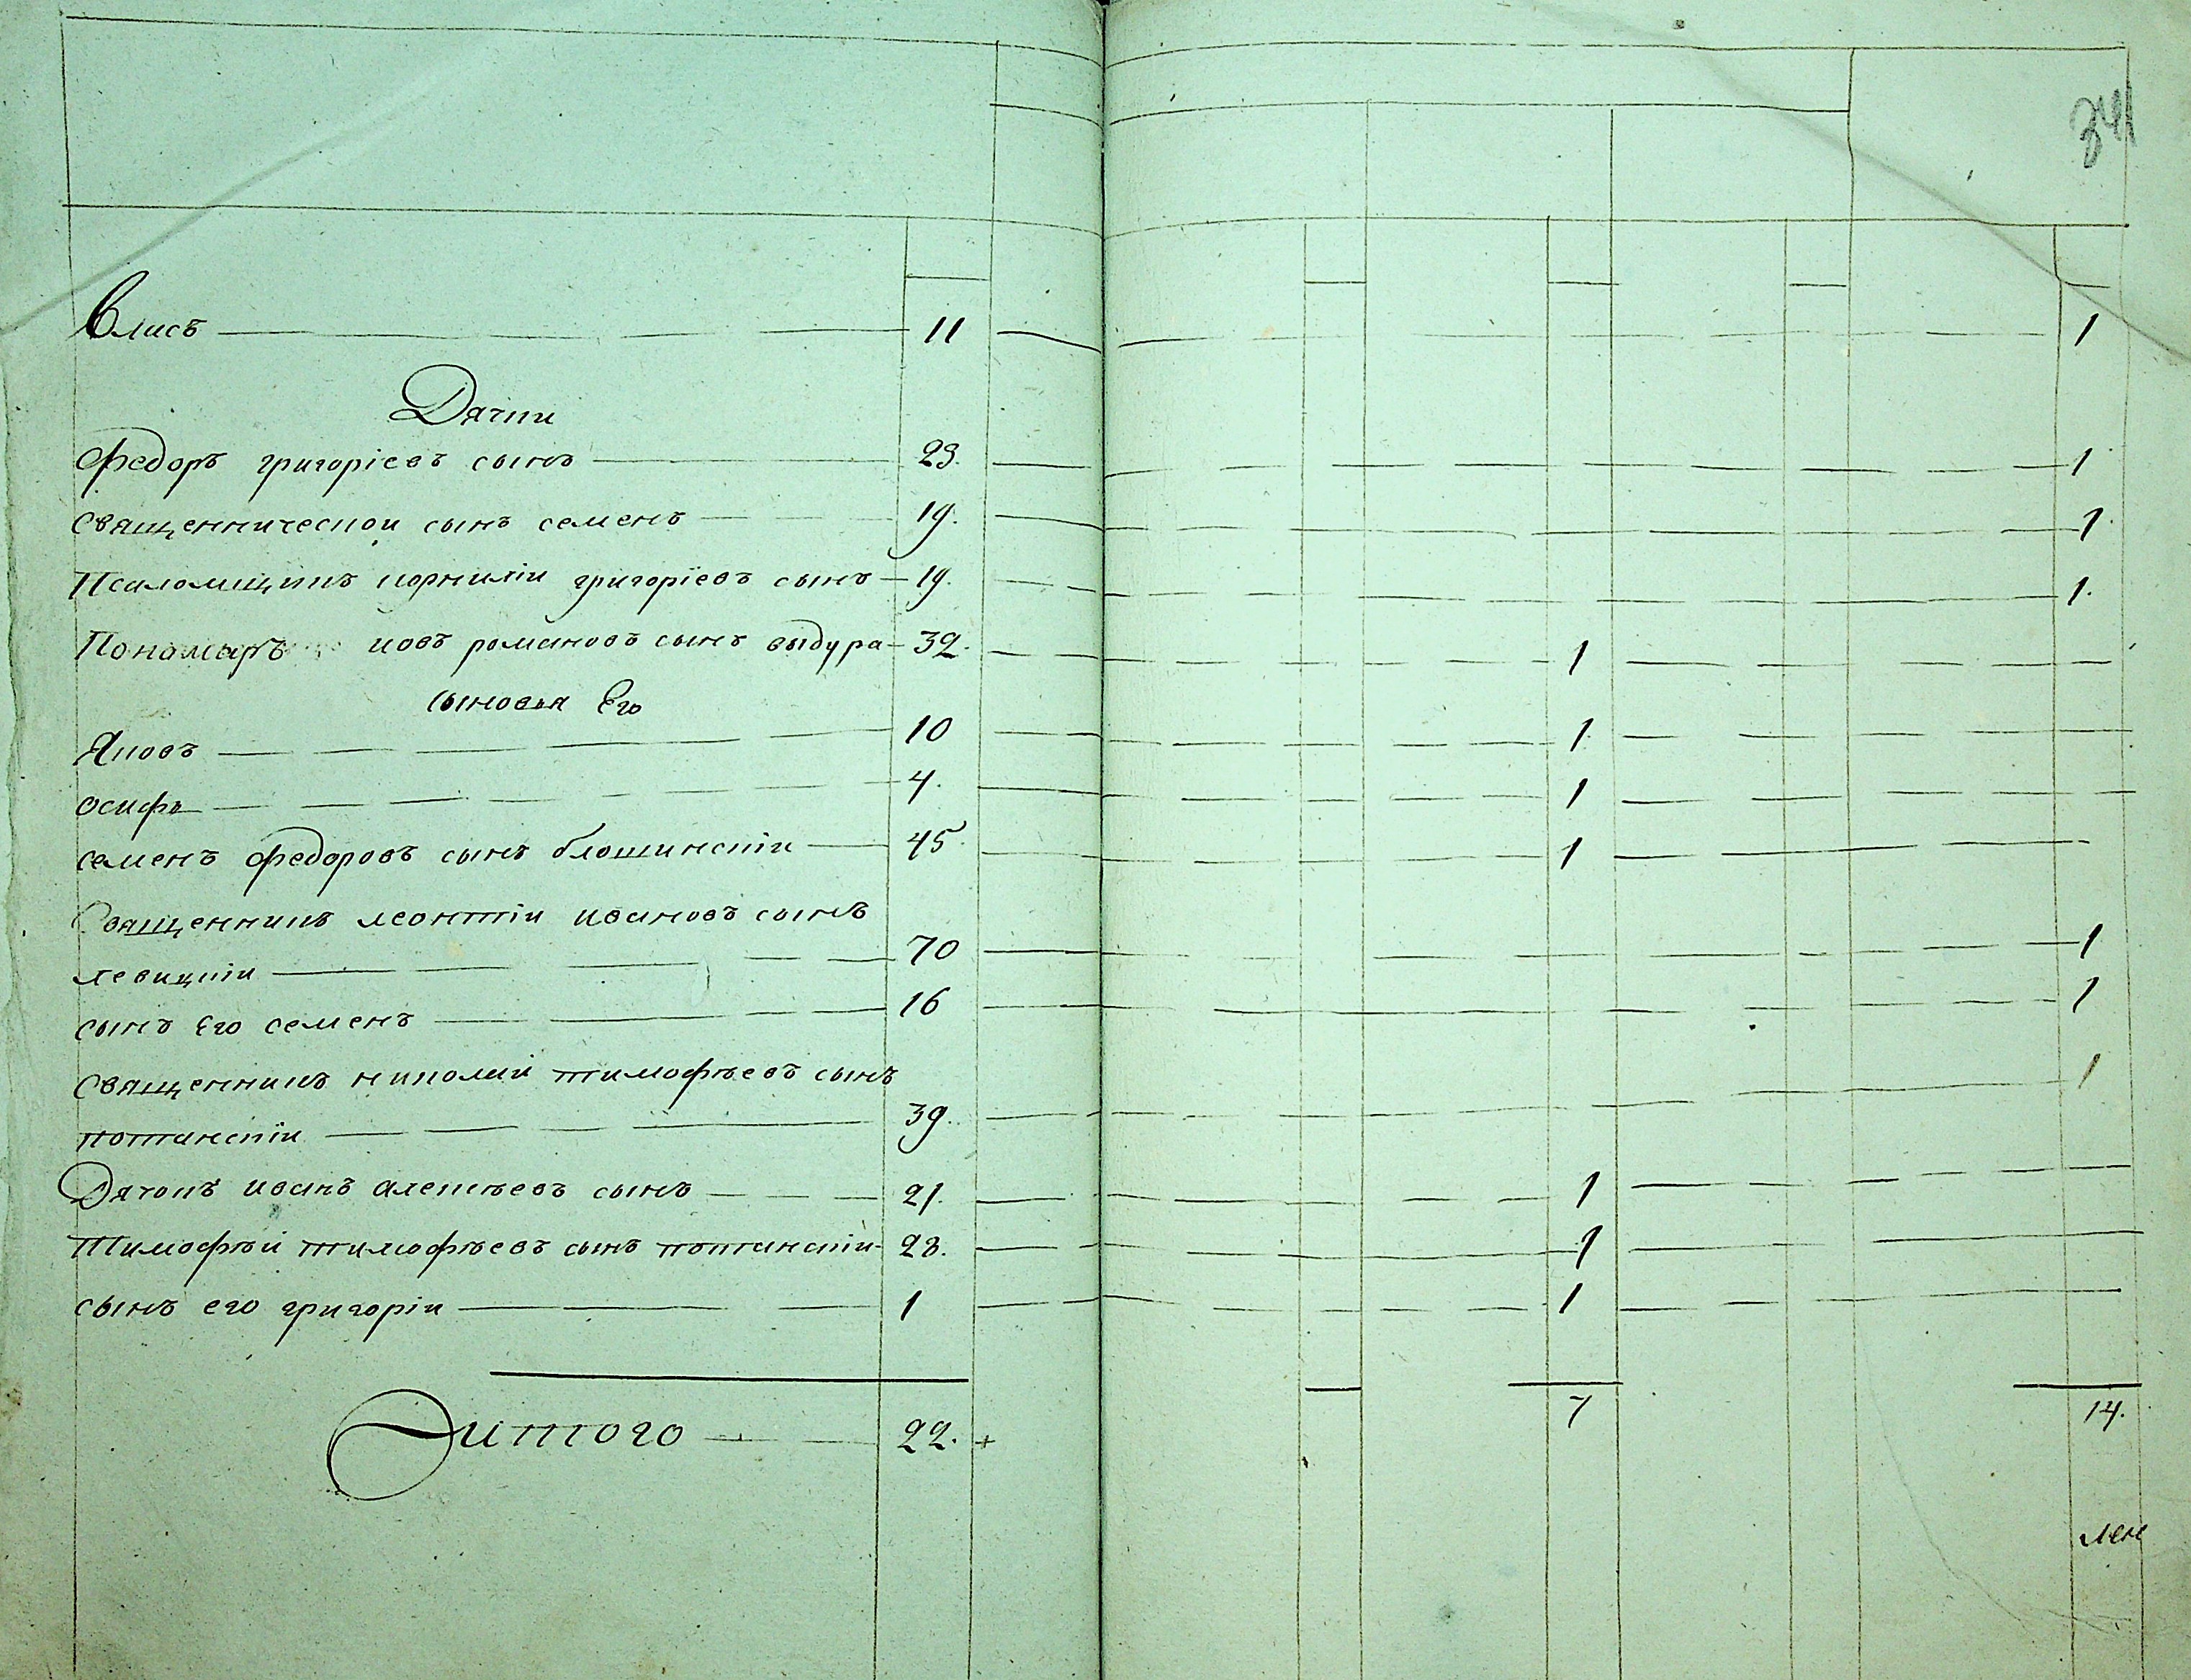 341
Елисъ 11 1
Дячки
Федоръ григоріевъ сынъ 23. 1
Священническои сынъ семенъ 19. 1
Псаломщикъ корниліи григоріевъ сынъ 19. 1.
Пономаръ иовъ романовъ сынъ выдура 32. 1
сыновья Его
Яковъ 10 1
осифъ 4. 1
семенъ федоровъ сынъ блошинскіи 45 1
Священникъ леонтіи ивановъ сынъ
левицкіи 70 1
сынъ Его семенъ 16 1
Священникъ николаи тимофѣевъ сынъ 1
потанскіи 39.
Дячокъ иванъ алексѣевъ сынъ 21. 1
Тимофѣи тимофѣевъ сынъ потанскіи 23. 1
сынъ его григоріи 1 1
итого 22. + 7 14.